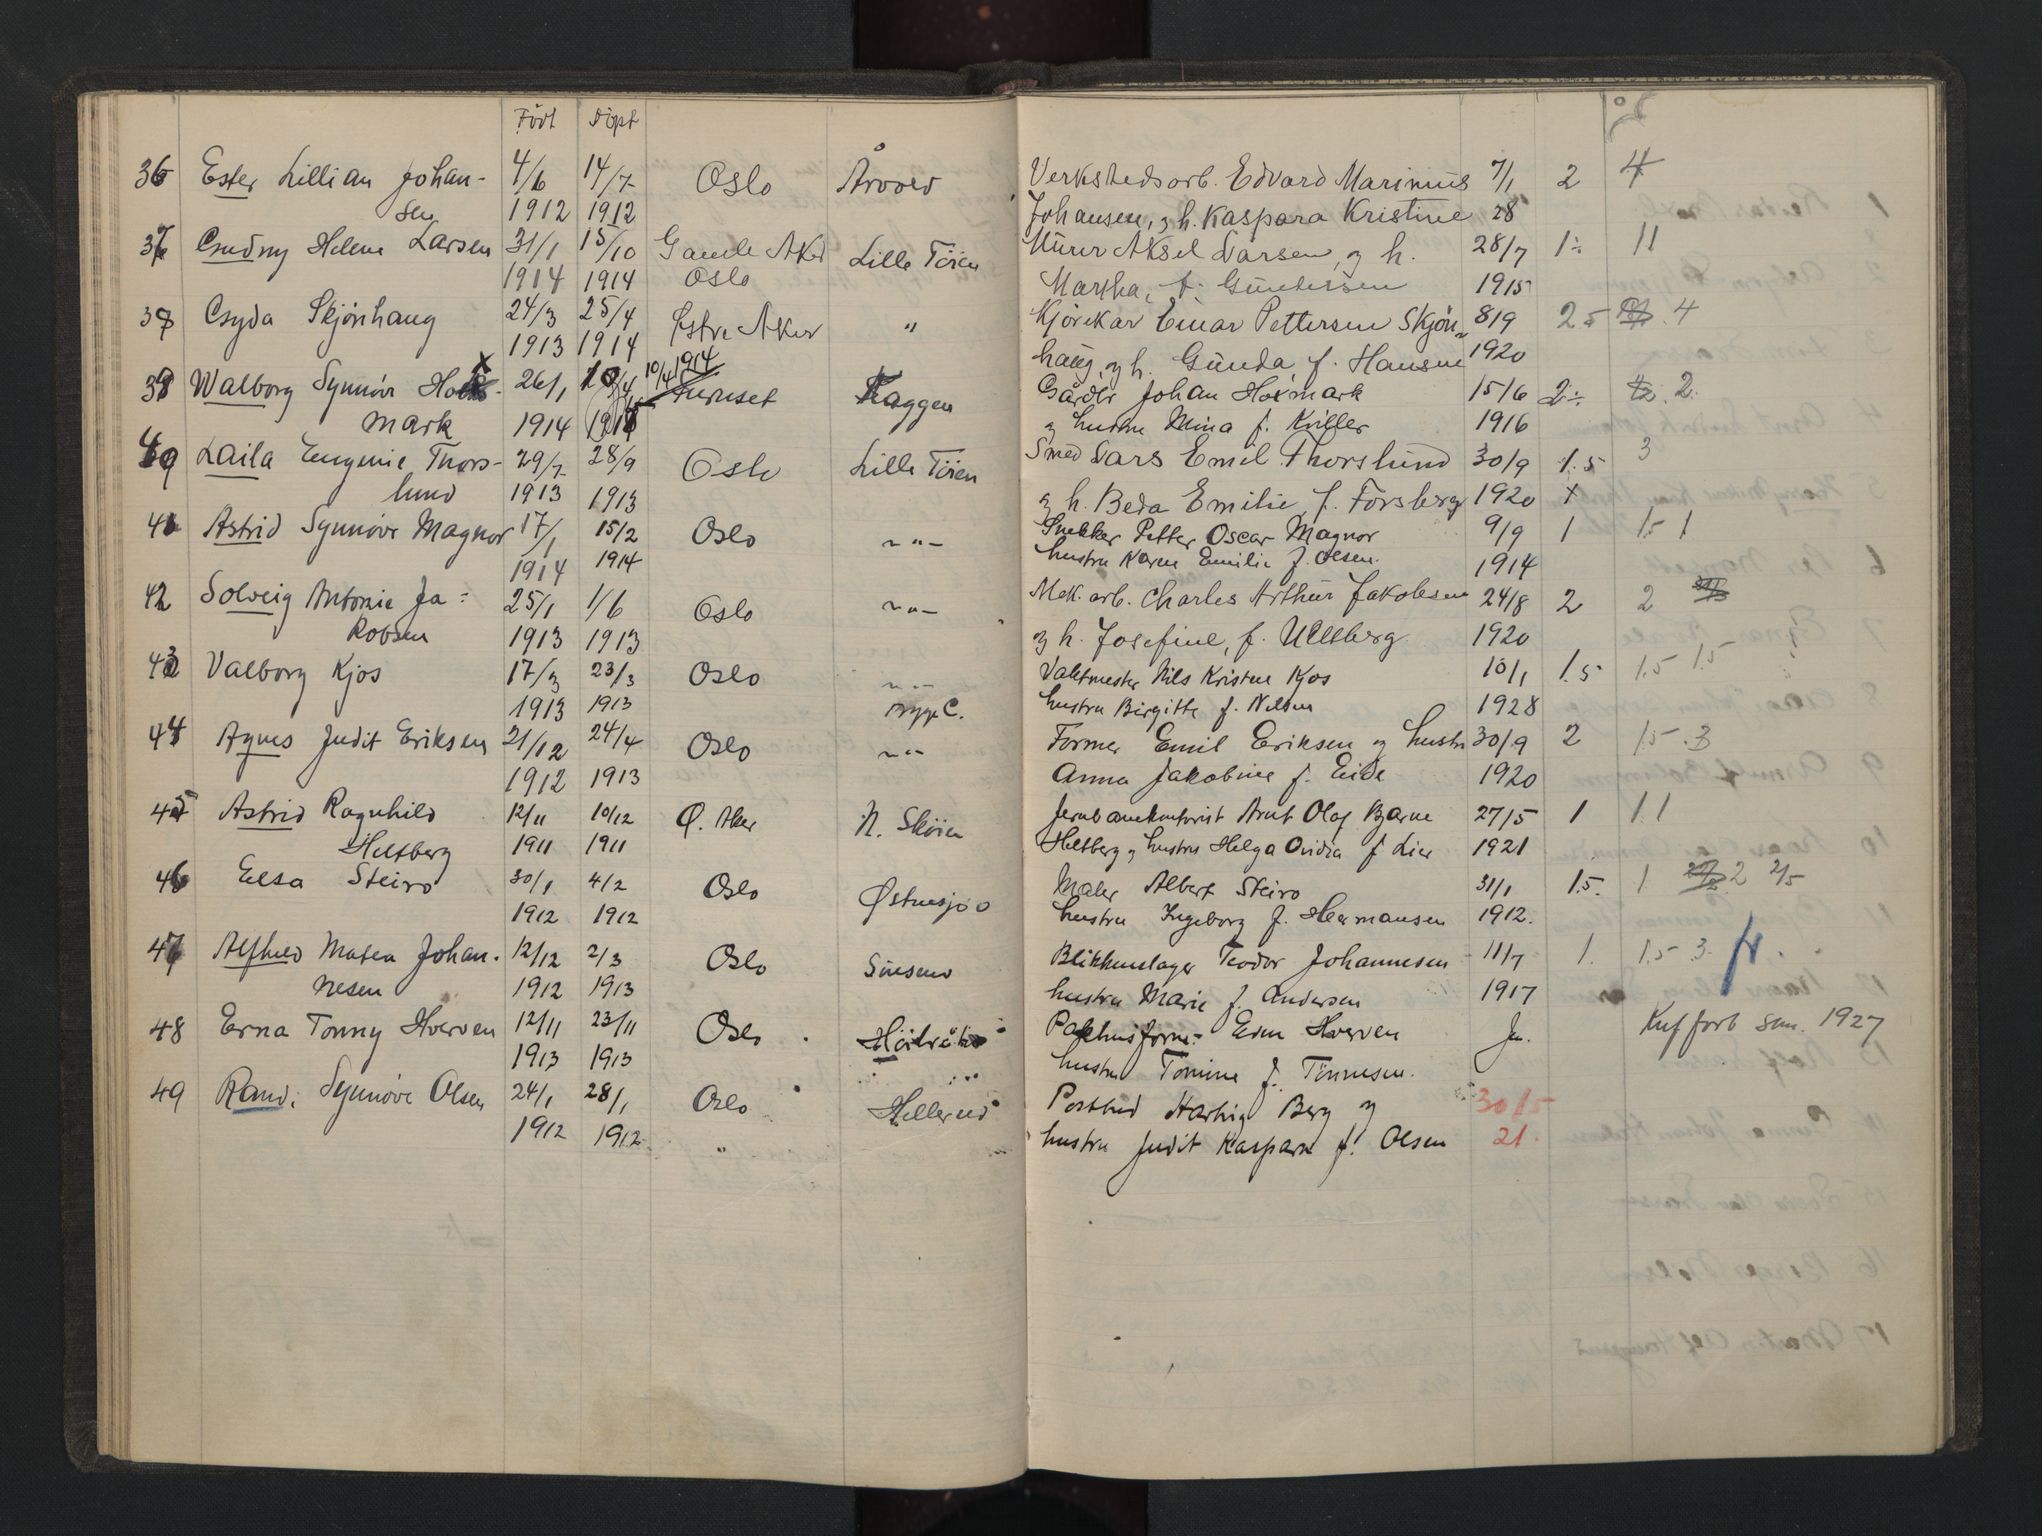 Född Döpt
36 Ester Lillian Johan- 4/6 14/7 Oslo Årvold Verkstedsarb. Edvard Marinius 7/1 2 4
sen 1912 1912 Johansen, og h. Kaspara Kristine 28
37 Gudny Helene Larsen 31/1 15/10 Gamle Aker Lille Töien Murer Aksel Larsen, og h. 28/7 1÷ 11
1914 1914 Oslo Martha, f. Gundersen 1915
38 Gyda Skjönhaug 24/3 25/4 Östre Aker " Kjörekar Einar Pettersen Skjön 8/9 2 5 4
1913 1914 haug, og h. Gunda, f. Hansen 1920
39 Walborg Synnöv 26/1 10/4 1914 Furuset Kaggen Gårdbr Johan Hoxmark 15/6 2÷ 2.
mark 1914 og hustru Mina f. Kniller 1916
40 Laila Eugenie Thors- 29/7 28/9 Oslo Lille Töien Smed Lars Emil Thorslund 30/9 1.5 3
lund 1913 1913 og h. Beda Emilie, f. Forsberg 1920 +
41 Astrid Synnöve Magnor 17/1 15/2 Oslo -"- Snekker Petter Oscar Magnor 9/9 1 1.5 1
1914 1914 hustru Karen Emilie f. Olsen. 1914
42 Solveig Antonie Ja= 25/1 1/6 Oslo -"- Mek. arb. Charles Arthur Jakobsen 24/8 2 2
kobsen 1913 1913 og h. Josefine, f. Ullberg 1920
43 Valborg Kjos 17/3 23/3 Oslo -"- Vaktmester Nils Kristen Kjos 10/1 1.5 1.5 1.5
1913 1913 Bygg C. hustru Birgitte f. Nilsen 1928
44 Agnes Judit Eriksen 21/12 24/4 Oslo -"- Former Emil Eriksen og hustru 30/9 2 1.5 3
1912 1913 Anna Jakobine f. Eide 1920
45 Astrid Ragnhild 12/11 10/12 Ø. Aker N. Sköien Jernbanekontorist Arnt Olaf Bjarne 27/5 1 1.1
Heltberg 1911 1911 Heltberg og hustru Helga Ovidia f Lier 1921
46 Elsa Steiro 30/1 4/2 Oslo Østensjoo Maler Albert Steiro 31/1 1.5. 1 2 2/5
1912 1912 hustru Ingeborg f. Hermansen 1912.
47 Alfhild Matea Johan- 12/12 2/3 Oslo Sinsend Blikkenslager Teodor Johannesen 11/7 1. 1.5 3.
nesen 1912 1913 hustru Marie f. Andersen 1917
48 Erna Tonny Hverven 12/11 23/11 Oslo Pakhusform. Hverven Ja. Knf forb sen. 1927
1913 1913 hustru Tomine f. Tönnesen.
49 Randi Synnöve Olsen 24/1 28/1 Oslo Hellerud Postbud Hartvig Berg og 30/5
1912 1912 " hustru Judit Kaspara f. Olsen 21.